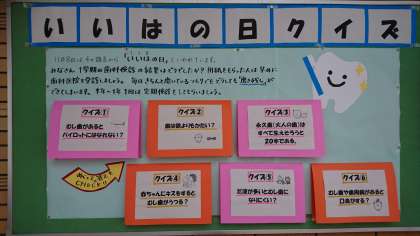 いいはの日クイズ
11月8日はその語呂から「いいはの日」といわれています。
みなさん、1学期の歯科検診の結果はどうでしたか？用紙をもらった人は早めに
歯科医院を受診しましょう。毎日きちんと磨いているつもりでもどうしても「磨き残し」が
でてしまいます。半年～1年に1回は定期検診をしてもらいましょう。
クイズ1
むし歯があると
パイロットにはなれない？
クイズ2
歯は鉄よりもかたい？
クイズ3
永久歯（大人の歯）は
すべて生えそろうと
20本である。
めくって答えを
CHECK!!
クイズ4
赤ちゃんにキスをすると
むし歯がうつる？
クイズ5
だ液が多いとむし歯に
なりにくい？
クイズ6
むし歯や歯周病があると
口臭がする？